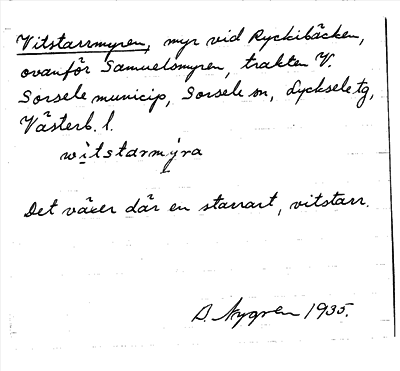 Vitstarrmyren, myr vid Ryckibäcken,
ovanför Samuelsmyren, trakten V.
Sorsele municip, Sorsele sn, Lycksele tg,
Västerb. l.
witstarmýra
Det växer där en starrart, vitstarr.
D. Nygren 1935.